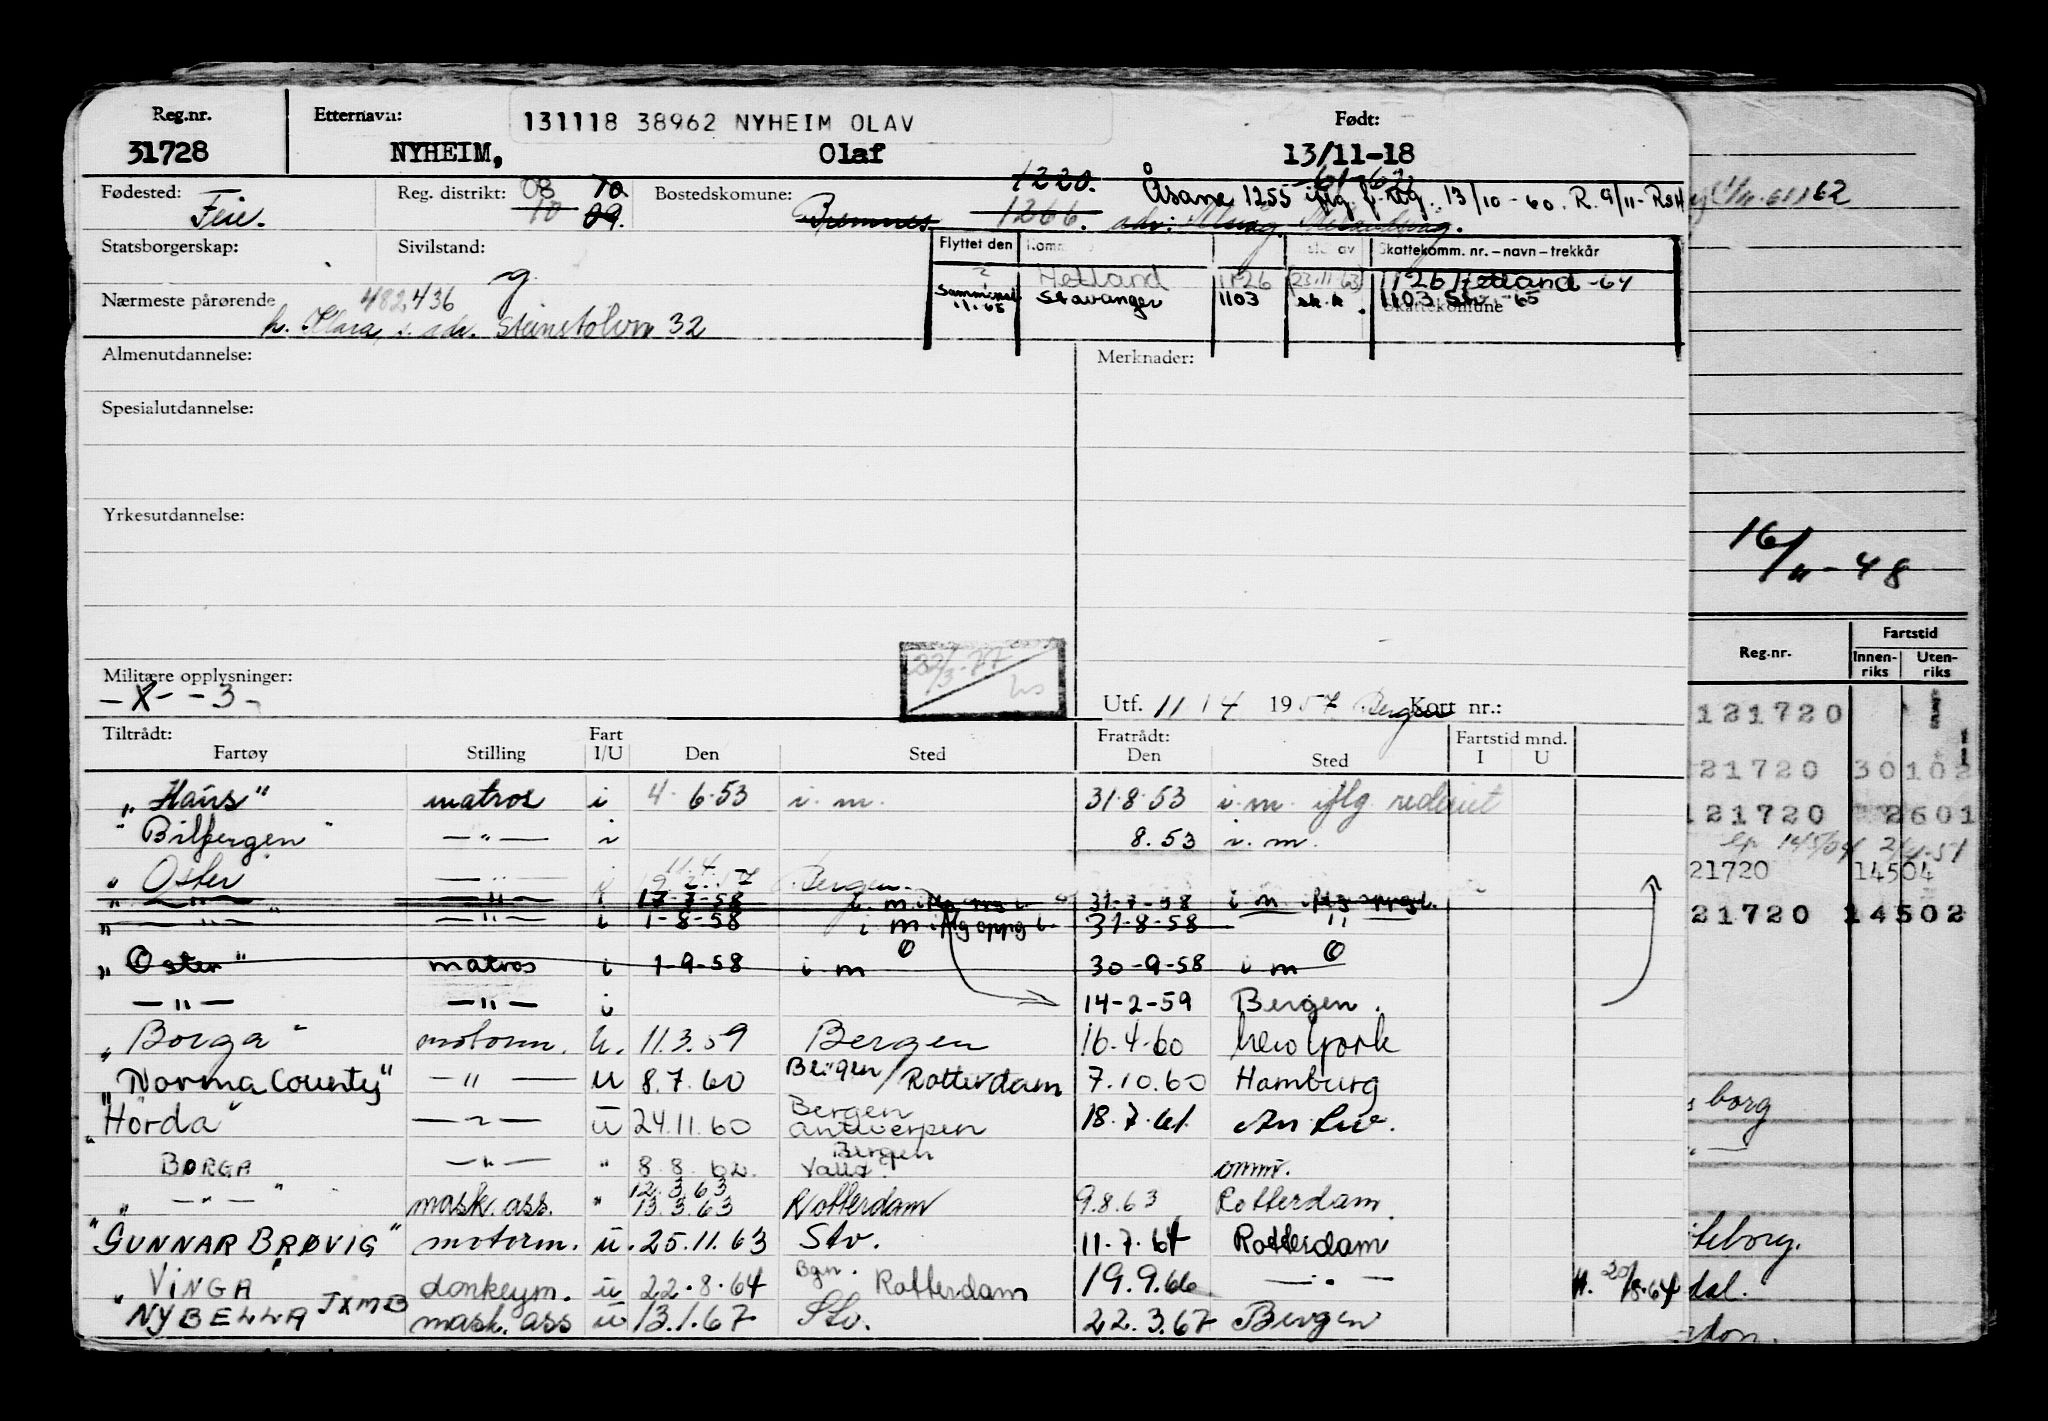 Reg.nr. Etternavn: 131118 38962 NYHEIM OLAV Født:
31728 NYHEIM, Olaf 13/11-18
Fødested: Feie. Reg. distrikt: 08 10 10 09. Bostedskomune: Bremnes 1220. 1266. Åsane 1255 iflg. f.reg. 13/10-60. R. 9/11-RSH 61-62
Statsborgerskap: Sivilstand: g.
Flyttet den Skattekomm. nr. – navn – trekkår
Hetland 1126 23.11.63 1126 Hetland -64
11.65 Stavanger 1103 sk.k. 1103 -65
Skattekomune
Nærmeste pårørende 482,436
h. Klara, s. adr. Steinstølvn 32
Almenutdannelse: Merknader:
Spesialutdannelse:
Yrkesutdannelse:
Militære opplysninger:
-X- -3-
Utf. 11 / 4 1957 Bergen Kort nr.:
Tiltrådt: Fratrådt: Fartstid mnd.
Fartøy Stilling Fart I/U Den Sted Den Sted I U
"Haus" matros i 4-6-53 i.m. 31-8-53 i.m. iflg rederiet
"Bilfergen" — " — i 8.53 i.m.
"Oster — " — i 11.4.57 Bergen.
— " — — " — i 1-7-58 i.m. 31-7-58 i m iflg oppg.
— " — — " — i 1-8-58 i m iflg oppg 31-8-58 "
"Oster" matros i 1-9-58 i m 30-9-58 i m
— " — — " — i 14-2-59 Bergen.
"Borga" motorm. u. 11.3.59 Bergen 16-4-60 New York
"Norma County" — " — u 8.7.60 Bergen/Rotterdam 7.10.60 Hamburg
"Horda" — " — u 24.11.60 Bergen Antwerpen 18.7.61.
BORGA — " — " 8.8.62. Bergen
— " — mask. ass. " 12.3.63 13.3.63 Rotterdam 9.8.63 Rotterdam
"GUNNAR BRØVIG" motorm. u. 25.11.63 Stv. 11-7-64 Rotterdam
"VINGA" donkeym. u 22-8-64 Bgn. Rotterdam 19.9.66 — " — 20/8-64
"NYBELLA JXMB mask. ass u 13.1.67 Stv. 22.3.67 Bergen
62
16/11-48
Reg.nr. Fartstid
Innen-riks Uten-riks
121720
21720 30102
121720 2601
21720 14504
21720 14502
borg
teborg.
dal.